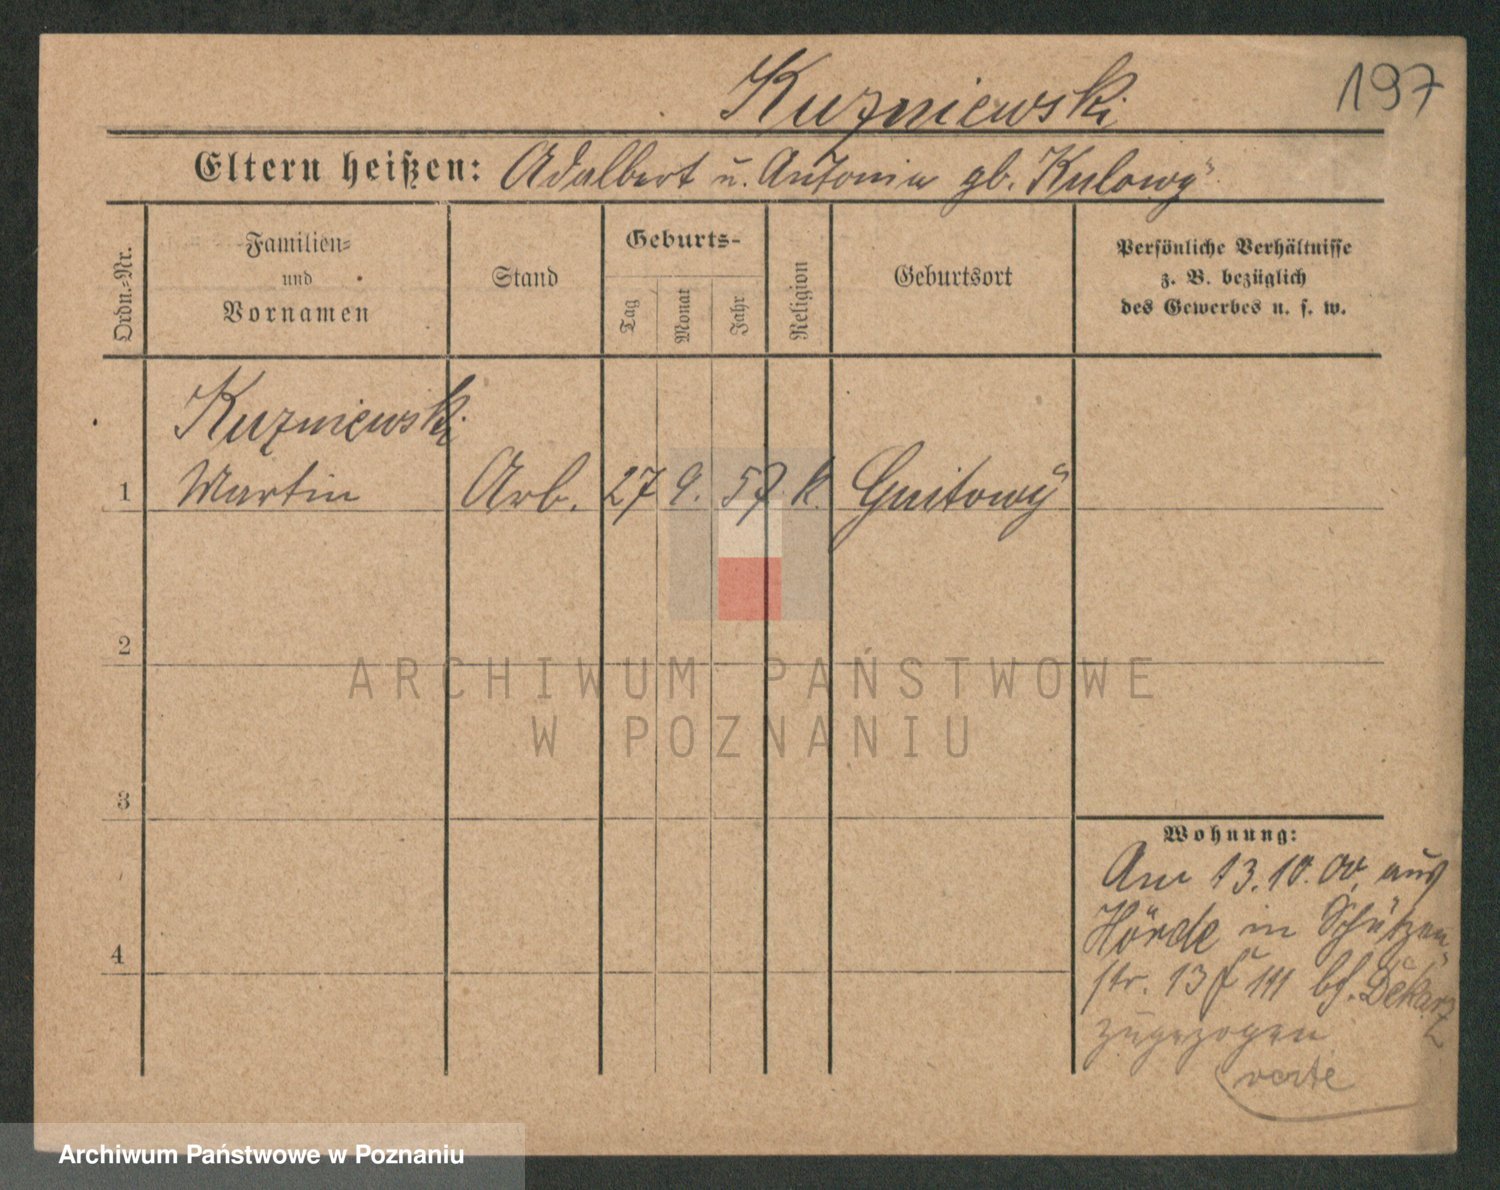 197
Kuzniewski
Eltern heißen: Adalbert u. Antonia gb. Kulowÿ
Ordn.-Nr.
Familien-
und
Vornamen
Stand
Geburts-
Tag
Monat
Jahr
Religion
Geburtsort
Persönliche Verhältnisse
z. B. bezüglich
des Gewerbes u. s. w.
Kuzniewski
1 Martin Arb. 27 9. 57 k. Gnitowÿ
2
3
4
Wohnung:
Am 13.10.00, aus
Hörde in Schützen-
str. 13 III bf. Dekarz
zugezogen
verte
ARCHIWUM PAŃSTWOWE
W POZNANIU
Archiwum Państwowe w Poznaniu